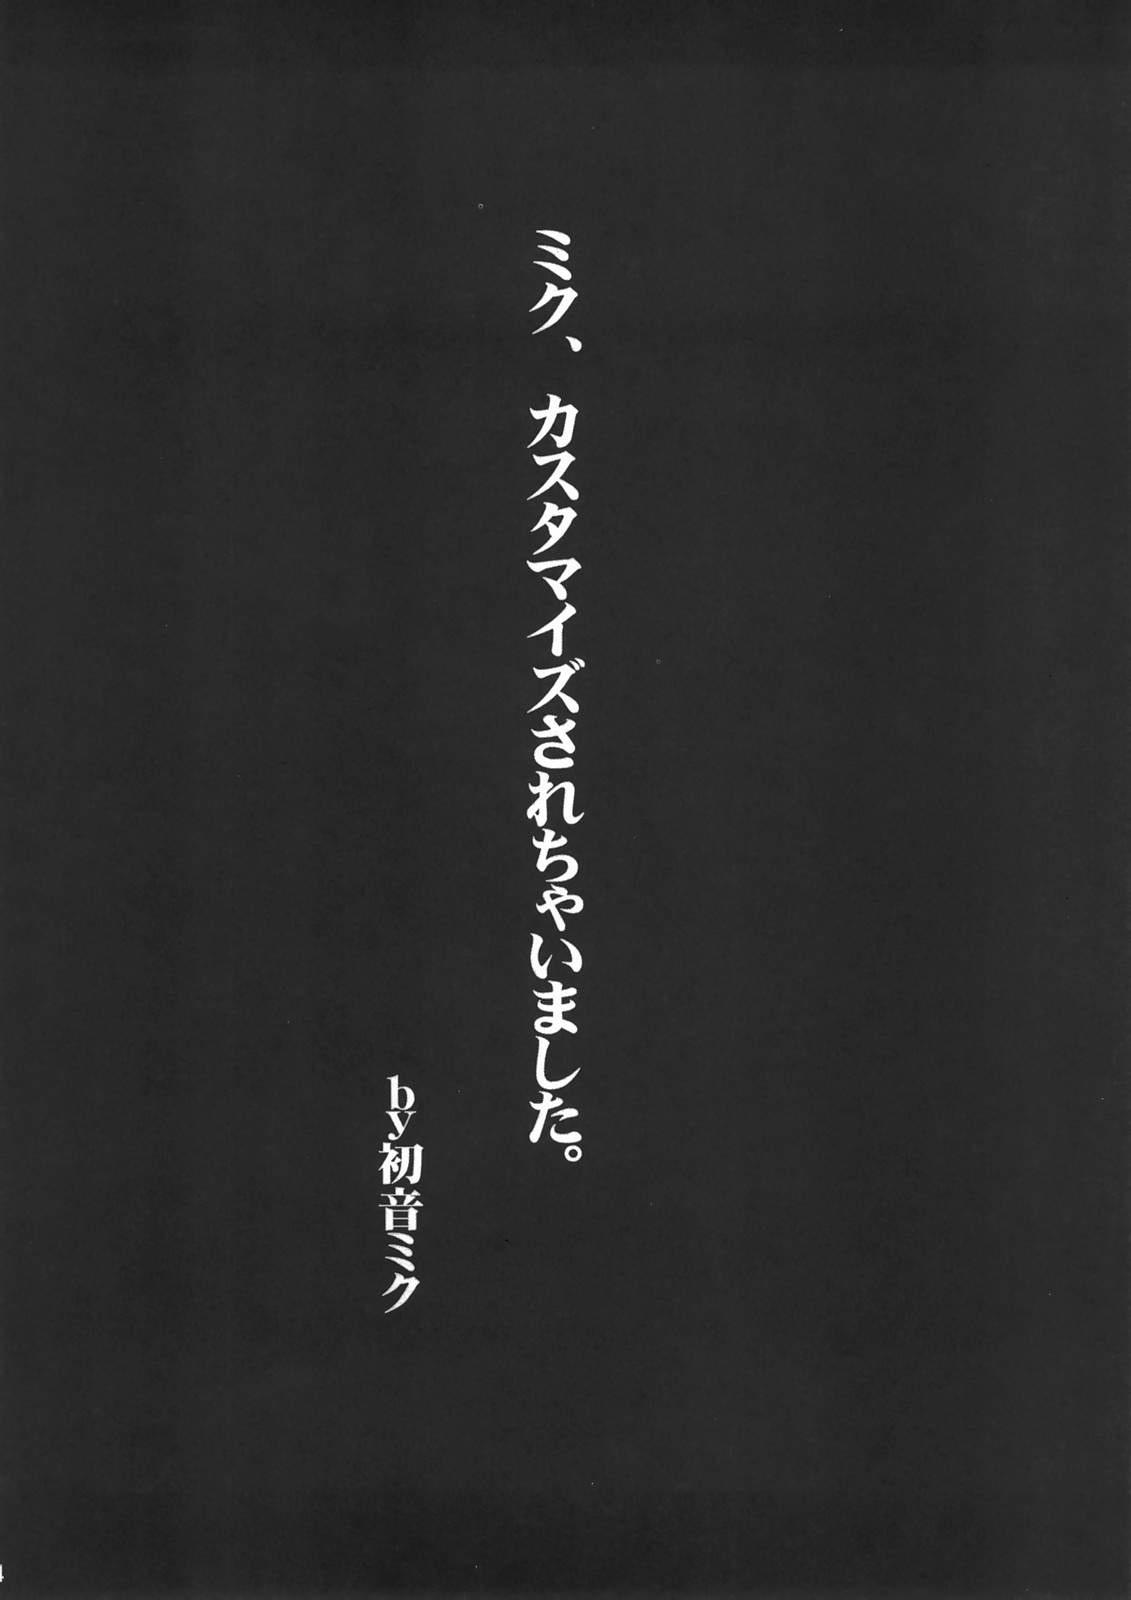 ミク、カスタマイズされちゃいました。
by初音ミク
4